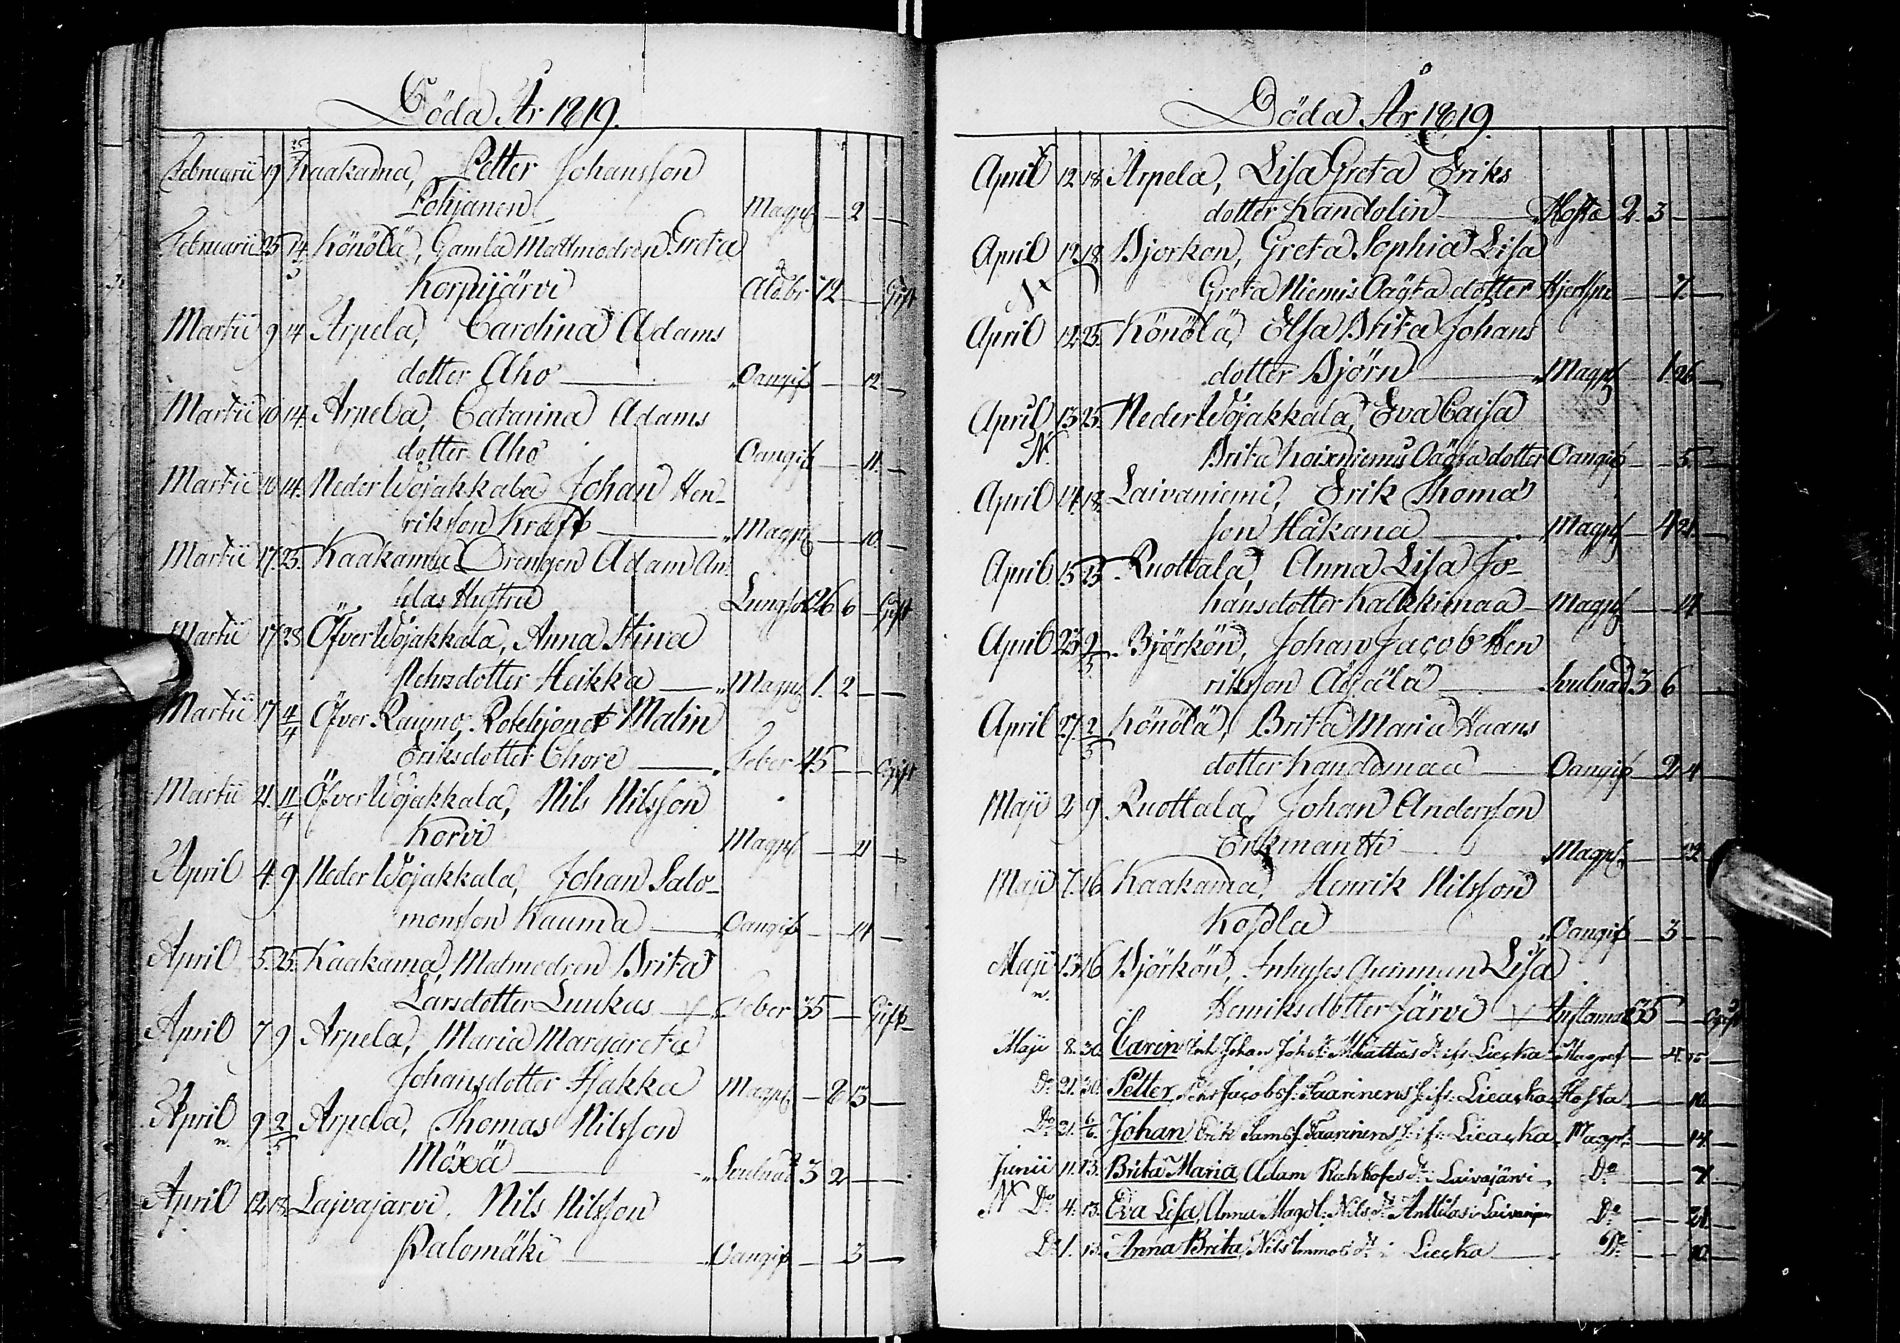 Döda År 1819.
Februarii 19 25/3 Kaakama, Petter Johansson
Pohjanen Magpl — 2 —
Februarii 25 14/3 Könölä, Gamla Matmodren Greta
Korpijärvi Åldbr 72 — Gift
Martii 9 14 Arpela, Carolina Adams
dotter Aho — Oangif — 12 —
Martii 10 14 Arpela, Catarina Adams
dotter Aho Oangif — 11 —
Martii 10 14 Neder Wojakkala Johan Hen-
riksson Kraft — Magpl — 10 —
Martii 17 25 Kaakama Drengen Adam An-
Hustru Lungsot 26 6 — Gift
Martii 17 28 Öfver Wojakkala, Anna Stina
Pehrsdotter Heikka — Magpl 1 2 —
Martii 17 4/4 Öfver Raumo Malin
Eriksdotter Chore — Feber 45 — Gift
Martii 21 11/4 Öfver Wojakkala, Nils Nilsson
Korvi Magpl — 4 —
April 4 9 Neder Wojakkala, Johan Salo-
monsson Kauma — Oangif — 14 —
April 5 25 Kaakama, Matmodren Brita
Larsdotter Luukas — Feber 35 — Gift
April 7 9 Arpela, Maria Margareta
Johansdotter Hjakka Magpl — 2 13 —
April 9 2/5 Arpela, Thomas Nilsson
n.
Möxä — 3 2 —
April 12 18 Laivajarvi, Nils Nilsson
Palomäki — Oangif — 3 —
Döda År 1819
April 12 18 Arpela, Lisa Greta Eriks
dotter Kandolin — Hosta 2 3 —
April 12 18 Bjorkon, Greta Sophia Lisa
N
Greta Niemis Oägta dotter — 7 —
April 12 25 Könölä, Elsa Brita Johans
dotter Björn — Magpl — 1 26 —
April 13 25 Neder Wojakkala, Eva Caisa
N.
Brita Koivuniemis Oägta dotter Oangif — 5 —
April 14 18 Laivaniemi, Erik Thoma
son Hakana — Magpl — 4 21 —
April 15 25 Ruottala, Anna Lisa Jo-
hansdotter Kalkkimaa — Magpl — 14 —
April 25 2/5 Björkön, Johan Jacob Hen
riksson — 3 6 —
April 27 2/5 Könölä, Brita Maria Haans
dotter Kandomaa — Oangif — 2 4 —
Maji 2 9 Ruottala, Johan Andersson
Erkmantti — Magpl — 22
Maji 7 16 Kaakama, Henrik Nilsson
Koskla — Oangif — 3 —
Maji 13 16 Björkön, Inhyses Quinnan Lisa
n.
Henriksdotter Järvi — 35 — Gift
Maji 8 30 Carin Johan Johs Mattas d. ifr. Liedka Magref —
Do 21 30 Petter Jacobs. Saarinens s. ifr. Lieaska Hosta — 10 —
Do 21 6/6 Johan Erik Sams. Saarinens s. ifr. Lieaska Magpl — 14 —
Junii 11 13 Brita Maria, Adam Rahkos d. i Laivajärvi, Do — 7 —
N Do 4 13 Eva Lisa, Anna Magd. Nils d. Anttilas i Laivaniemi Do — 21 —
Do 1 13 Anna Brita, Nils Immos d. i Liedka — Do — 10 —